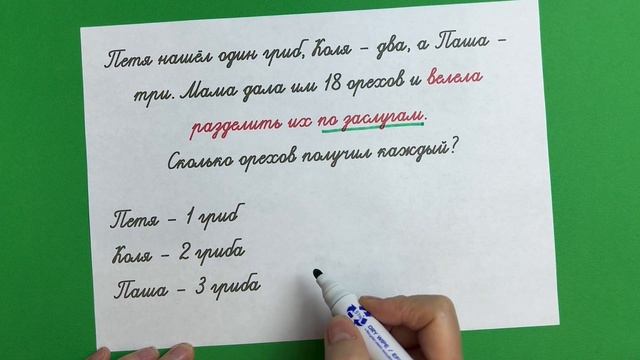 Петя нашёл один гриб, Коля - два, а Паша -
три. Мама дала им 18 орехов и велела
разделить их по заслугам.
Сколько орехов получил каждый?
Петя - 1 гриб
Коля - 2 гриба
Паша - 3 гриба